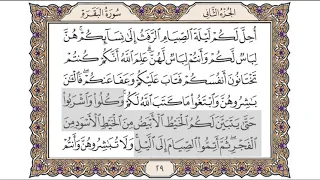 الجزء الثاني
سورة البقرة
أُحِلَّ لَكُمْ لَيْلَةَ ٱلصِّيَامِ ٱلرَّفَثُ إِلَىٰ نِسَآئِكُمْ هُنَّ
لِبَاسٌ لَّكُمْ وَأَنتُمْ لِبَاسٌ لَّهُنَّ عَلِمَ ٱللَّهُ أَنَّكُمْ كُنتُمْ
تَخْتَانُونَ أَنفُسَكُمْ فَتَابَ عَلَيْكُمْ وَعَفَا عَنكُمْ فَٱلْـَٰٔنَ
بَـٰشِرُوهُنَّ وَٱبْتَغُوا۟ مَا كَتَبَ ٱللَّهُ لَكُمْ وَكُلُوا۟ وَٱشْرَبُوا۟
حَتَّىٰ يَتَبَيَّنَ لَكُمُ ٱلْخَيْطُ ٱلْأَبْيَضُ مِنَ ٱلْخَيْطِ ٱلْأَسْوَدِ مِنَ
ٱلْفَجْرِ ثُمَّ أَتِمُّوا۟ ٱلصِّيَامَ إِلَى ٱلَّيْلِ وَلَا تُبَـٰشِرُوهُنَّ وَأَنتُمْ
٢٩